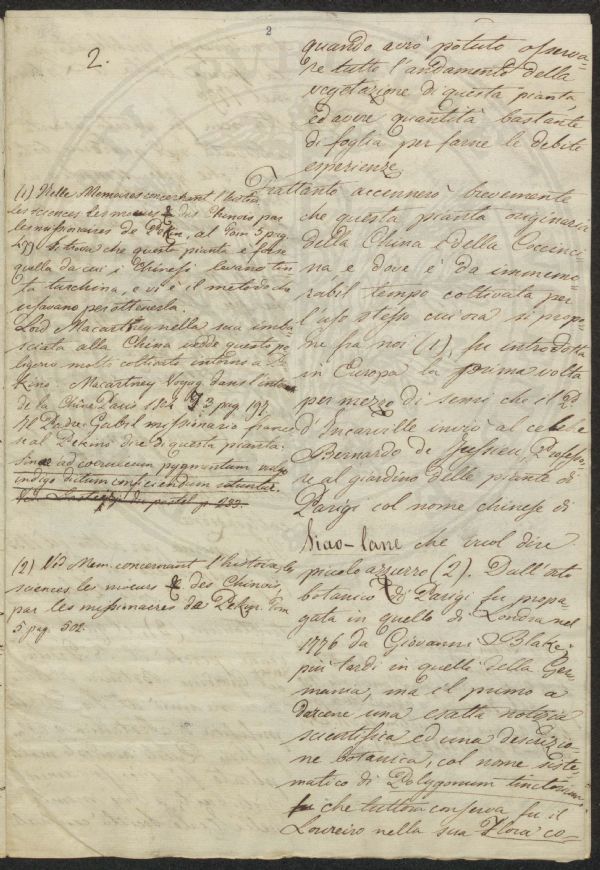 2
2.
quando avrò potuto osserva-
re tutto l'andamento della
vegetazione di questa pianta,
ed avere quantità bastante
di foglia per farne le debite
esperienze
Frattanto accennerò brevemente
che questa pianta originaria
della China e della Coccinci
na e dove è da immemo-
rabil tempo coltivata per
l'uso stesso cui ora si propo-
ne fra noi (1), fu introdotta
in Europa la prima volta
per mezzo di semi che il P.
d'Incarville inviò al celebre
Bernardo de Jussieu, Professo-
re al giardino delle piante di
Parigi col nome chinese di
Siao-lane che vuol dire
piccolo azzurro (2). Dall'orto
botanico di Parigi fu propa-
gata in quello di Londra nel
1776 da Giovanni Blake;
più tardi in quelli della Ger-
mania, ma il primo a
darcene una esatta notizia
scientifica ed una descrizio-
ne botanica, col nome siste-
matico di Polygonum tinctorium
che tuttora conserva fu il
Loureiro nella sua Flora co-
(1) Nelle Memoires concernant l'histoire
les sciences les moeurs & des Chinois par
les missionaires de Pekin, al Tom 5 pag
si trova che questa pianta è forse
quella da cui i Chinesi cavano tin
ta turchina, e vi è il metodo che
usavano per ottenerla.
Lord Macarthey nella sua imba
sciata alla China vedde questo po
ligono molto coltivato intorno a Pe
kino. Macartney Voyag. dans l'inter
de la Chine Paris 3 pag 197.
Il Padre Gabil missionario france
se al Pekino dice di questa pianta:
Sinae ad coeruleum pygmentum vulgo
indigo dictum conficiendum utuntur.
(2) Vid Mem. concernant l'histoire, les
sciences, les moeurs & des Chinois
par les missionaires de Pekin. Tom
5 pag. 502.